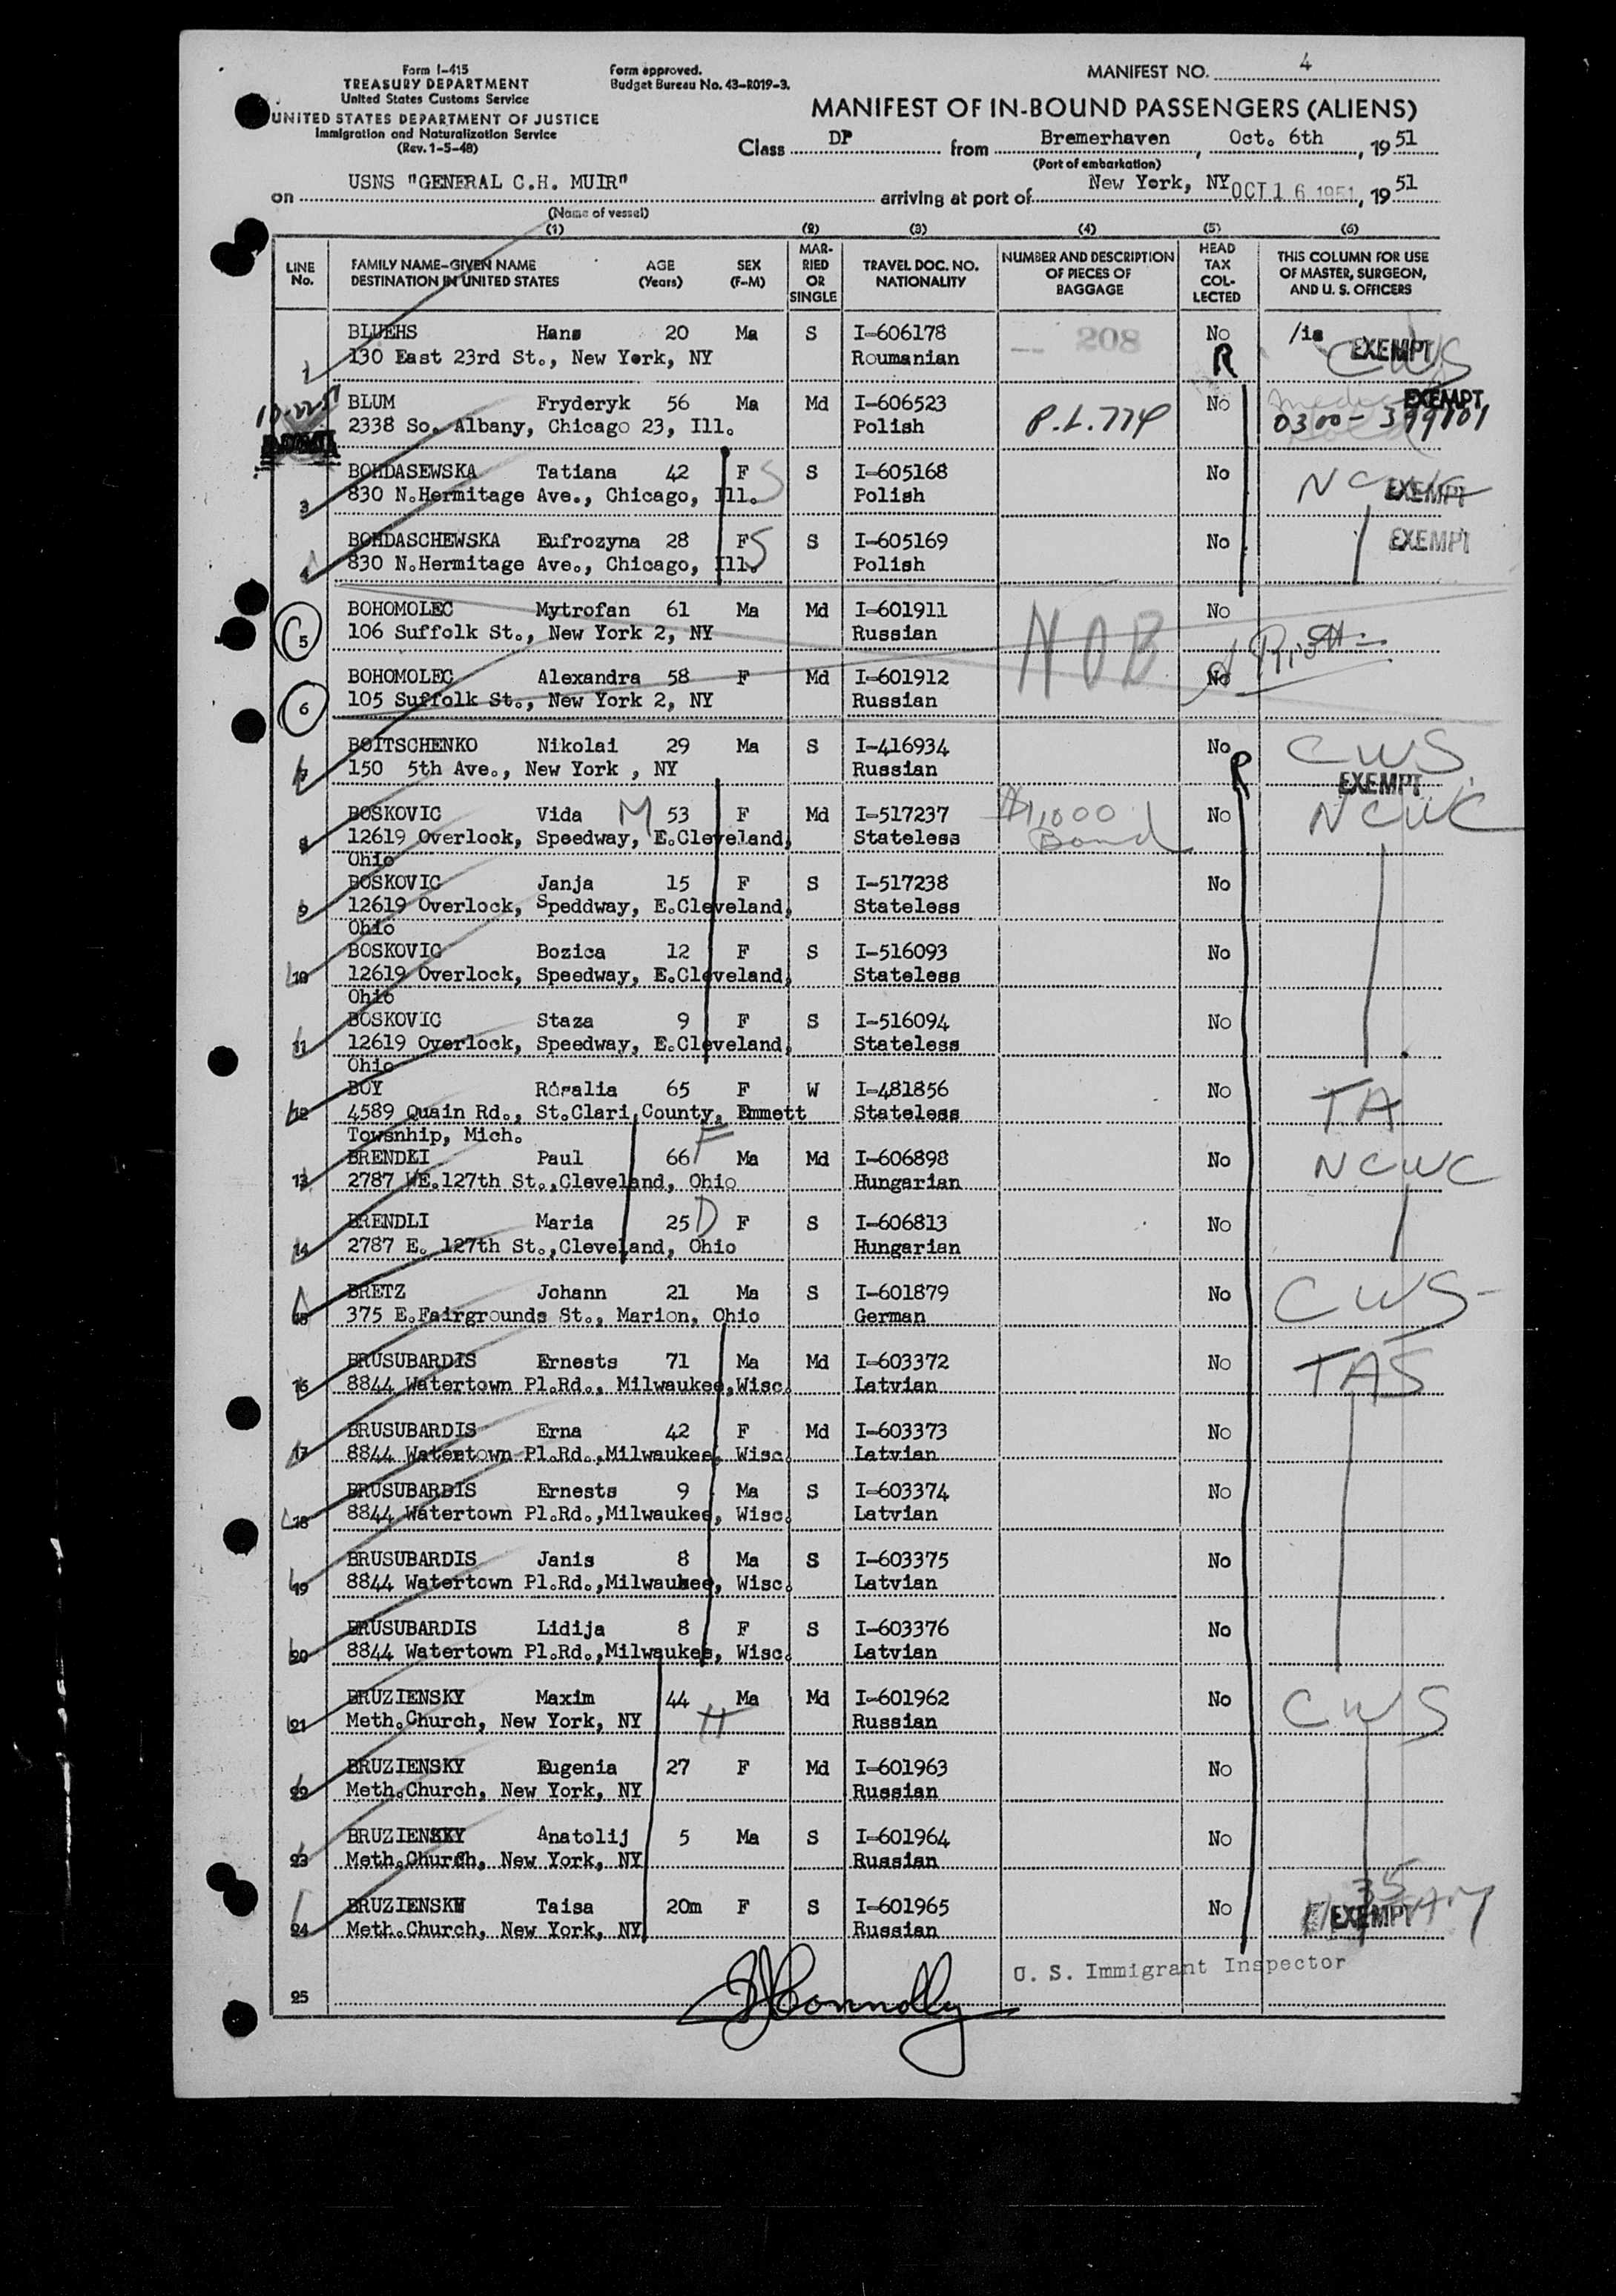 Form I-415
TREASURY DEPARTMENT
United States Customs Service
UNITED STATES DEPARTMENT OF JUSTICE
Immigration and Naturalization Service
(Rev. 1-5-48)
Form approved.
Budget Bureau No. 43-R019-3.
MANIFEST NO. 4
MANIFEST OF IN-BOUND PASSENGERS (ALIENS)
Class DP from Bremerhaven, Oct. 6th, 1951
(Port of embarkation)
on USNS "GENERAL C.H. MUIR" arriving at port of New York, NY OCT 16 1951, 1951
(Name of vessel)
(1) (2) (3) (4) (5) (6)
LINE No. FAMILY NAME-GIVEN NAME DESTINATION IN UNITED STATES AGE (Years) SEX (F-M) MARRIED OR SINGLE TRAVEL DOC. NO. NATIONALITY NUMBER AND DESCRIPTION OF PIECES OF BAGGAGE HEAD TAX COLLECTED THIS COLUMN FOR USE OF MASTER, SURGEON, AND U. S. OFFICERS
BLUEHS Hans 20 Ma S I-606178 208 No /is EXEMPT
1 130 East 23rd St., New York, NY Roumanian R CWS
10-22-51 BLUM Fryderyk 56 Ma Md I-606523 P.L.774 No EXEMPT
2338 So. Albany, Chicago 23, Ill. Polish 0300-399101
BOHDASEWSKA Tatiana 42 F S S I-605168 No NCWC EXEMPT
3 830 N.Hermitage Ave., Chicago, Ill. Polish
BOHDASCHEWSKA Eufrozyna 28 F S S I-605169 No EXEMPT
4 830 N.Hermitage Ave., Chicago, Ill. Polish
BOHOMOLEC Mytrofan 61 Ma Md I-601911 NOB No
5 106 Suffolk St., New York 2, NY Russian
BOHOMOLEC Alexandra 58 F Md I-601912 No
6 105 Suffolk St., New York 2, NY Russian
BOITSCHENKO Nikolai 29 Ma S I-416934 No CWS
7 150 5th Ave., New York , NY Russian R EXEMPT
BOSKOVIC Vida M 53 F Md I-517237 $1,000 Bond No NCWC
8 12619 Overlock, Speedway, E.Cleveland, Stateless
Ohio
BOSKOVIC Janja 15 F S I-517238 No
9 12619 Overlock, Speddway, E.Cleveland, Stateless
Ohio
BOSKOVIC Bozica 12 F S I-516093 No
10 12619 Overlock, Speedway, E.Cleveland, Stateless
Ohio
BOSKOVIC Staza 9 F S I-516094 No
11 12619 Overlock, Speedway, E.Cleveland, Stateless
Ohio
BOY Rosalia 65 F W I-481856 No TA
12 4589 Quain Rd., St.Clari County, Emmett Stateless
Towsnhip, Mich.
BRENDLI Paul 66 F Ma Md I-606898 No NCWC
13 2787 E.127th St.,Cleveland, Ohio Hungarian
BRENDLI Maria 25 D F S I-606813 No
14 2787 E. 127th St.,Cleveland, Ohio Hungarian
BRETZ Johann 21 Ma S I-601879 No CWS
15 375 E.Fairgrounds St., Marion, Ohio German
BRUSUBARDIS Ernests 71 Ma Md I-603372 No TAS
16 8844 Watertown Pl.Rd., Milwaukee,Wisc. Latvian
BRUSUBARDIS Erna 42 F Md I-603373 No
17 8844 Watertown Pl.Rd.,Milwaukee, Wisc. Latvian
BRUSUBARDIS Ernests 9 Ma S I-603374 No
18 8844 Watertown Pl.Rd.,Milwaukee, Wisc. Latvian
BRUSUBARDIS Janis 8 Ma S I-603375 No
19 8844 Watertown Pl.Rd.,Milwaukee, Wisc. Latvian
BRUSUBARDIS Lidija 8 F S I-603376 No
20 8844 Watertown Pl.Rd.,Milwaukee, Wisc. Latvian
BRUZIENSKY Maxim 44 Ma Md I-601962 No CWS
21 Meth.Church, New York, NY H Russian
BRUZIENSKY Eugenia 27 F Md I-601963 No
22 Meth.Church, New York, NY Russian
BRUZIENSKY Anatolij 5 Ma S I-601964 No
23 Meth.Church, New York, NY Russian
BRUZIENSKY Taisa 20m F S I-601965 No 35
24 Meth.Church, New York, NY Russian EXEMPT
U. S. Immigrant Inspector
25 Connolly